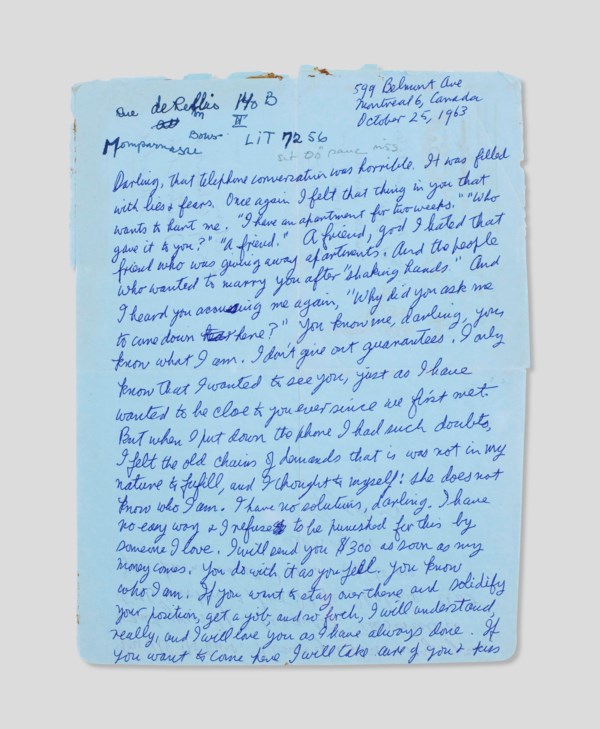 599 Belmont Ave
Montreal 6, Canada
October 25, 1963
Rue de 140 B
II
Momparnasse
LIT 72 56
Darling, that telephone conversation was horrible. It was filled
with lies & fears. Once again I felt that thing in you that
wants to hurt me. "I have an apartment for two weeks." "Who
gave it to you?" "A friend." A friend, god I hated that
friend who was giving away apartments. And the people
who wanted to marry you after "shaking hands." And
I heard you accusing me again, "Why did you ask me
to come down here?" You know me, darling, you
know what I am. I don't give out guarantees. I only
know that I wanted to see you, just as I have
wanted to be close to you ever since we first met.
But when I put down the phone I had such doubts,
I felt the old chains of demands that is was not in my
nature to fulfill, and I thought to myself: she does not
know who I am. I have no solutions, darling. I have
no easy way & I refuse to be punished for this by
someone I love. I will send you $300 as soon as my
money comes. You do with it as you feel. You know
who I am. If you want to stay over there and solidify
your position, get a job, and so forth, I will understand,
really, and I will love you as I have always done. If
you want to come here I will take care of you & kiss